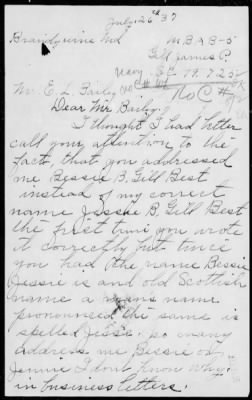 July 26th 37
Brandywine Md
M B A B-5
Gill James P.
Navy S.C. 79.725
No C #
Mr. E. L. Bailey
Dear Mr Bailey:
I thought I had better
call your attention to the
fact, that you addressed
me Bessie B. Gill Best
instead of my correct
name Jessie B. Gill Best
the first time you wrote
it correctly but twice
you had the name Bessie
Jessie is and old Scottish
name a mans name
pronounced the same is
spelled Jesse. so many
address me Bessie or
Jennie I dont know why?
in business letters.